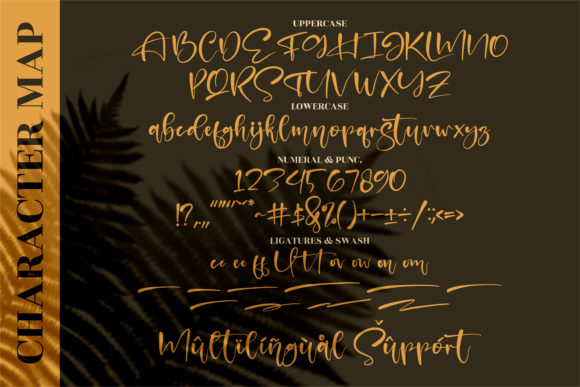 CHARACTER MAP
UPPERCASE
ABCDEFGHIJKLMNO
PQRSTUVWXYZ
LOWERCASE
abcdefghijklmnopqrstuvwxyz
NUMERAL & PUNC.
1234567890
!?,,,"""'~*~#$&%()+-±÷/:;<=>
LIGATURES & SWASH
ee ff tt ov ow on om
Mûltïlíñgùål Šûppórt